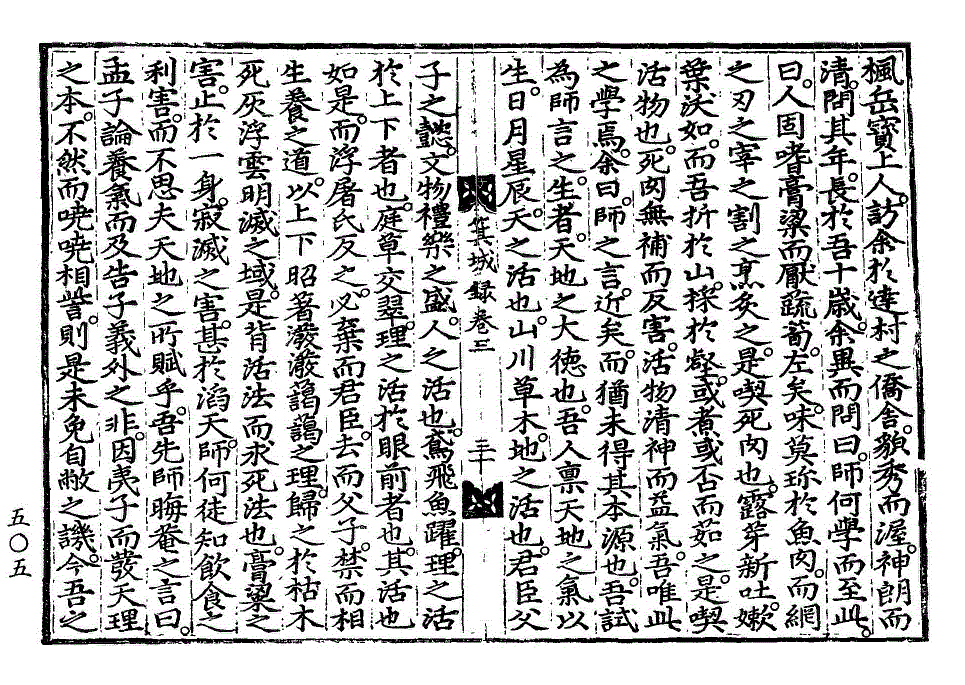 楓岳寶上人。訪余於達村之僑舍。貌秀而渥。神朗而
清。問其年。長於吾十歲。余異而問曰。師何學而至此。
曰。人固嗜膏粱而厭蔬筍。左矣。味莫珍於魚肉。而網
之刃之宰之割之烹灸之。是喫死肉也。露芽新吐。嫩
葉沃如。而吾折於山。採於壑。或煮或否而茹之。是喫
活物也。死肉無補而反害。活物清神而益氣。吾唯此
之學焉。余曰。師之言。近矣。而猶未得其本源也。吾試
為師言之。生者。天地之大德也。吾人禀天地之氣以
生。日月星辰。天之活也。山川草木。地之活也。君臣父
箕城錄卷三
三十
子之懿。文物禮樂之盛。人之活也。鳶飛魚躍。理之活
於上下者也。庭草交翠。理之活於眼前者也。其活也
如是。而浮屠氏反之。必棄而君臣。去而父子。禁而相
生養之道。以上下昭著潑潑藹藹之理。歸之於枯木
死灰浮雲明滅之域。是背活法而求死法也。膏粱之
害。止於一身。寂滅之害。甚於滔天。師何徒知飲食之
利害。而不思夫天地之所賦乎。吾先師晦菴之言曰。
孟子論養氣而及告子義外之非。因夷子而發天理
之本。不然而嘵嘵相訾。則是未免自敝之譏。今吾之
五〇五